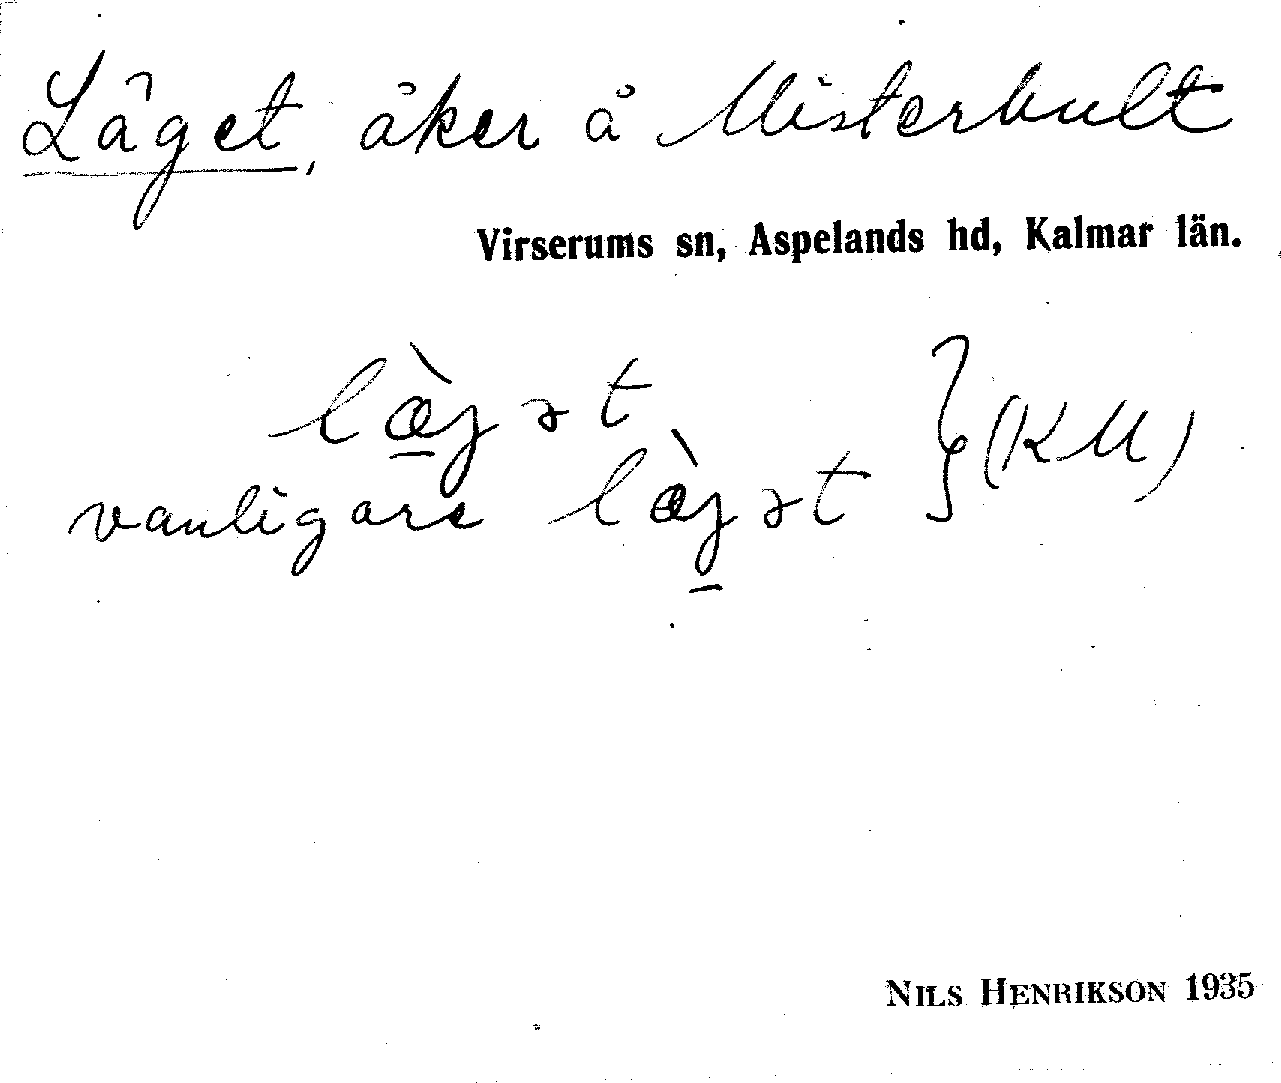 Låget, åker å Misterhult
Virserums sn, Aspelands hd, Kalmar län.
læ̀gət
vanligare læ̀gət } (KM)
NILS HENRIKSON 1935